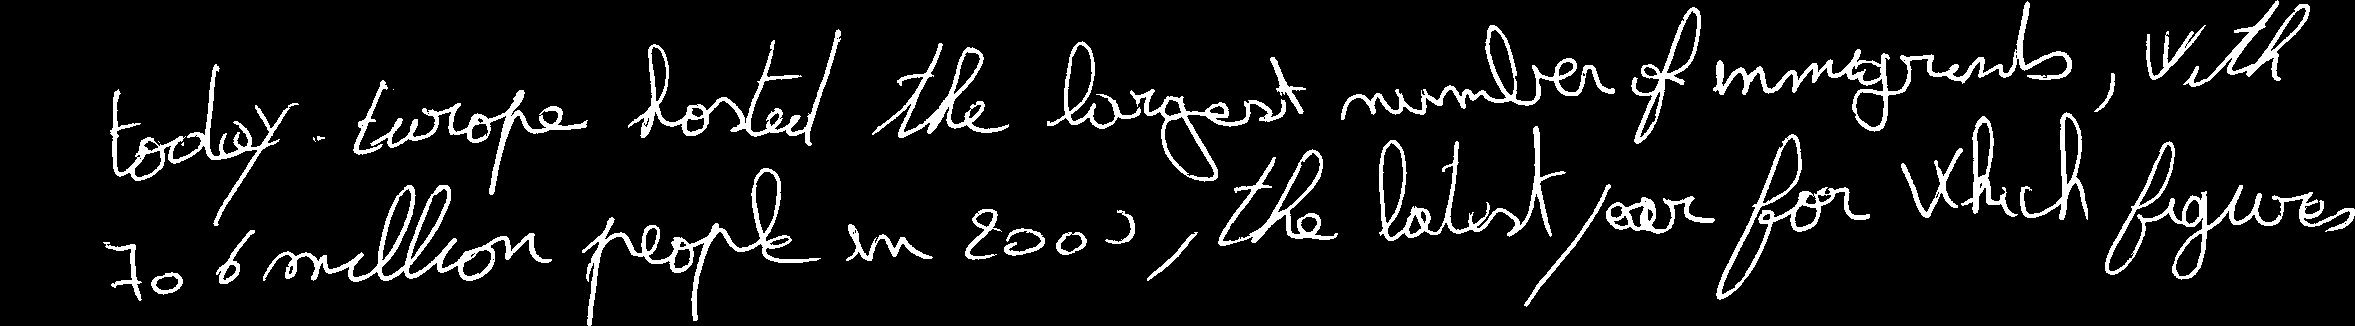 today. Europe hosted the largest number of immigrants, with
70 6 million people in 2005, the latest year for which figures